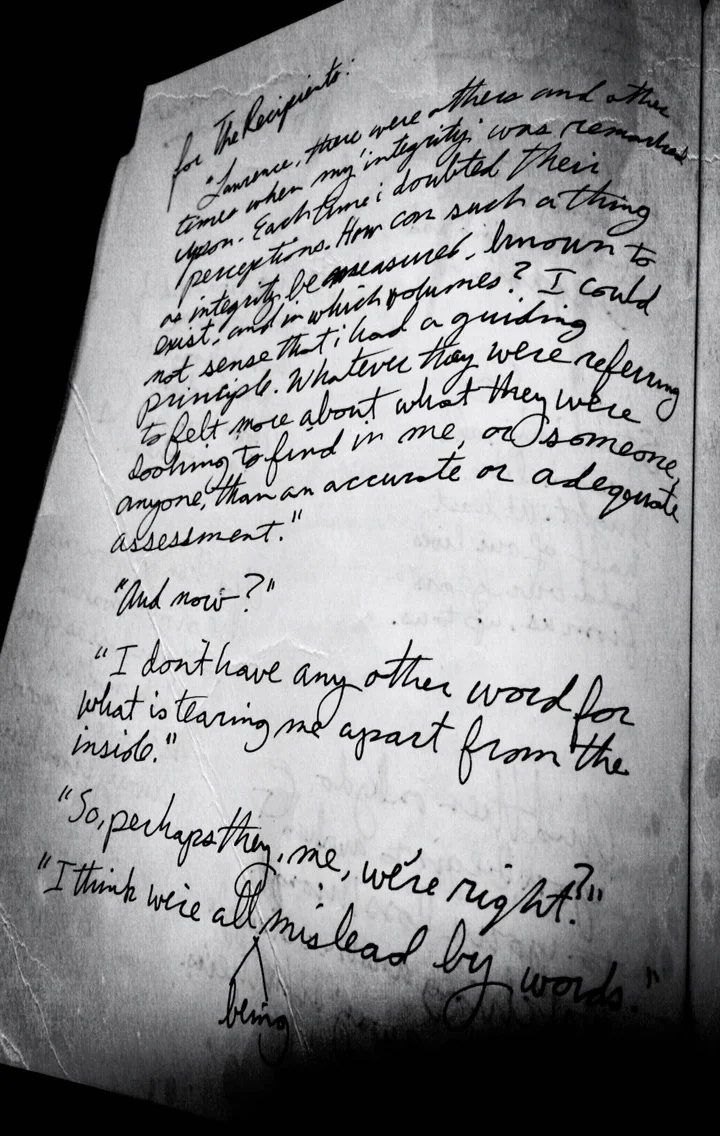 for The Recipients:
"Laurence, there were others and other
times when my 'integrity' was remarked
upon. Each time i doubted their
perceptions. How can such a thing
as integrity be measured, known to
exist, and in which volumes? I could
not sense that i had a guiding
principle. Whatever they were referring
to felt more about what they were
looking to find in me, or someone,
anyone, than an accurate or adequate
assessment."
"And now?"
"I don't have any other word for
what is tearing me apart from the
inside."
"So, perhaps they, me, we're right?"
"I think we're all mislead by words."
being